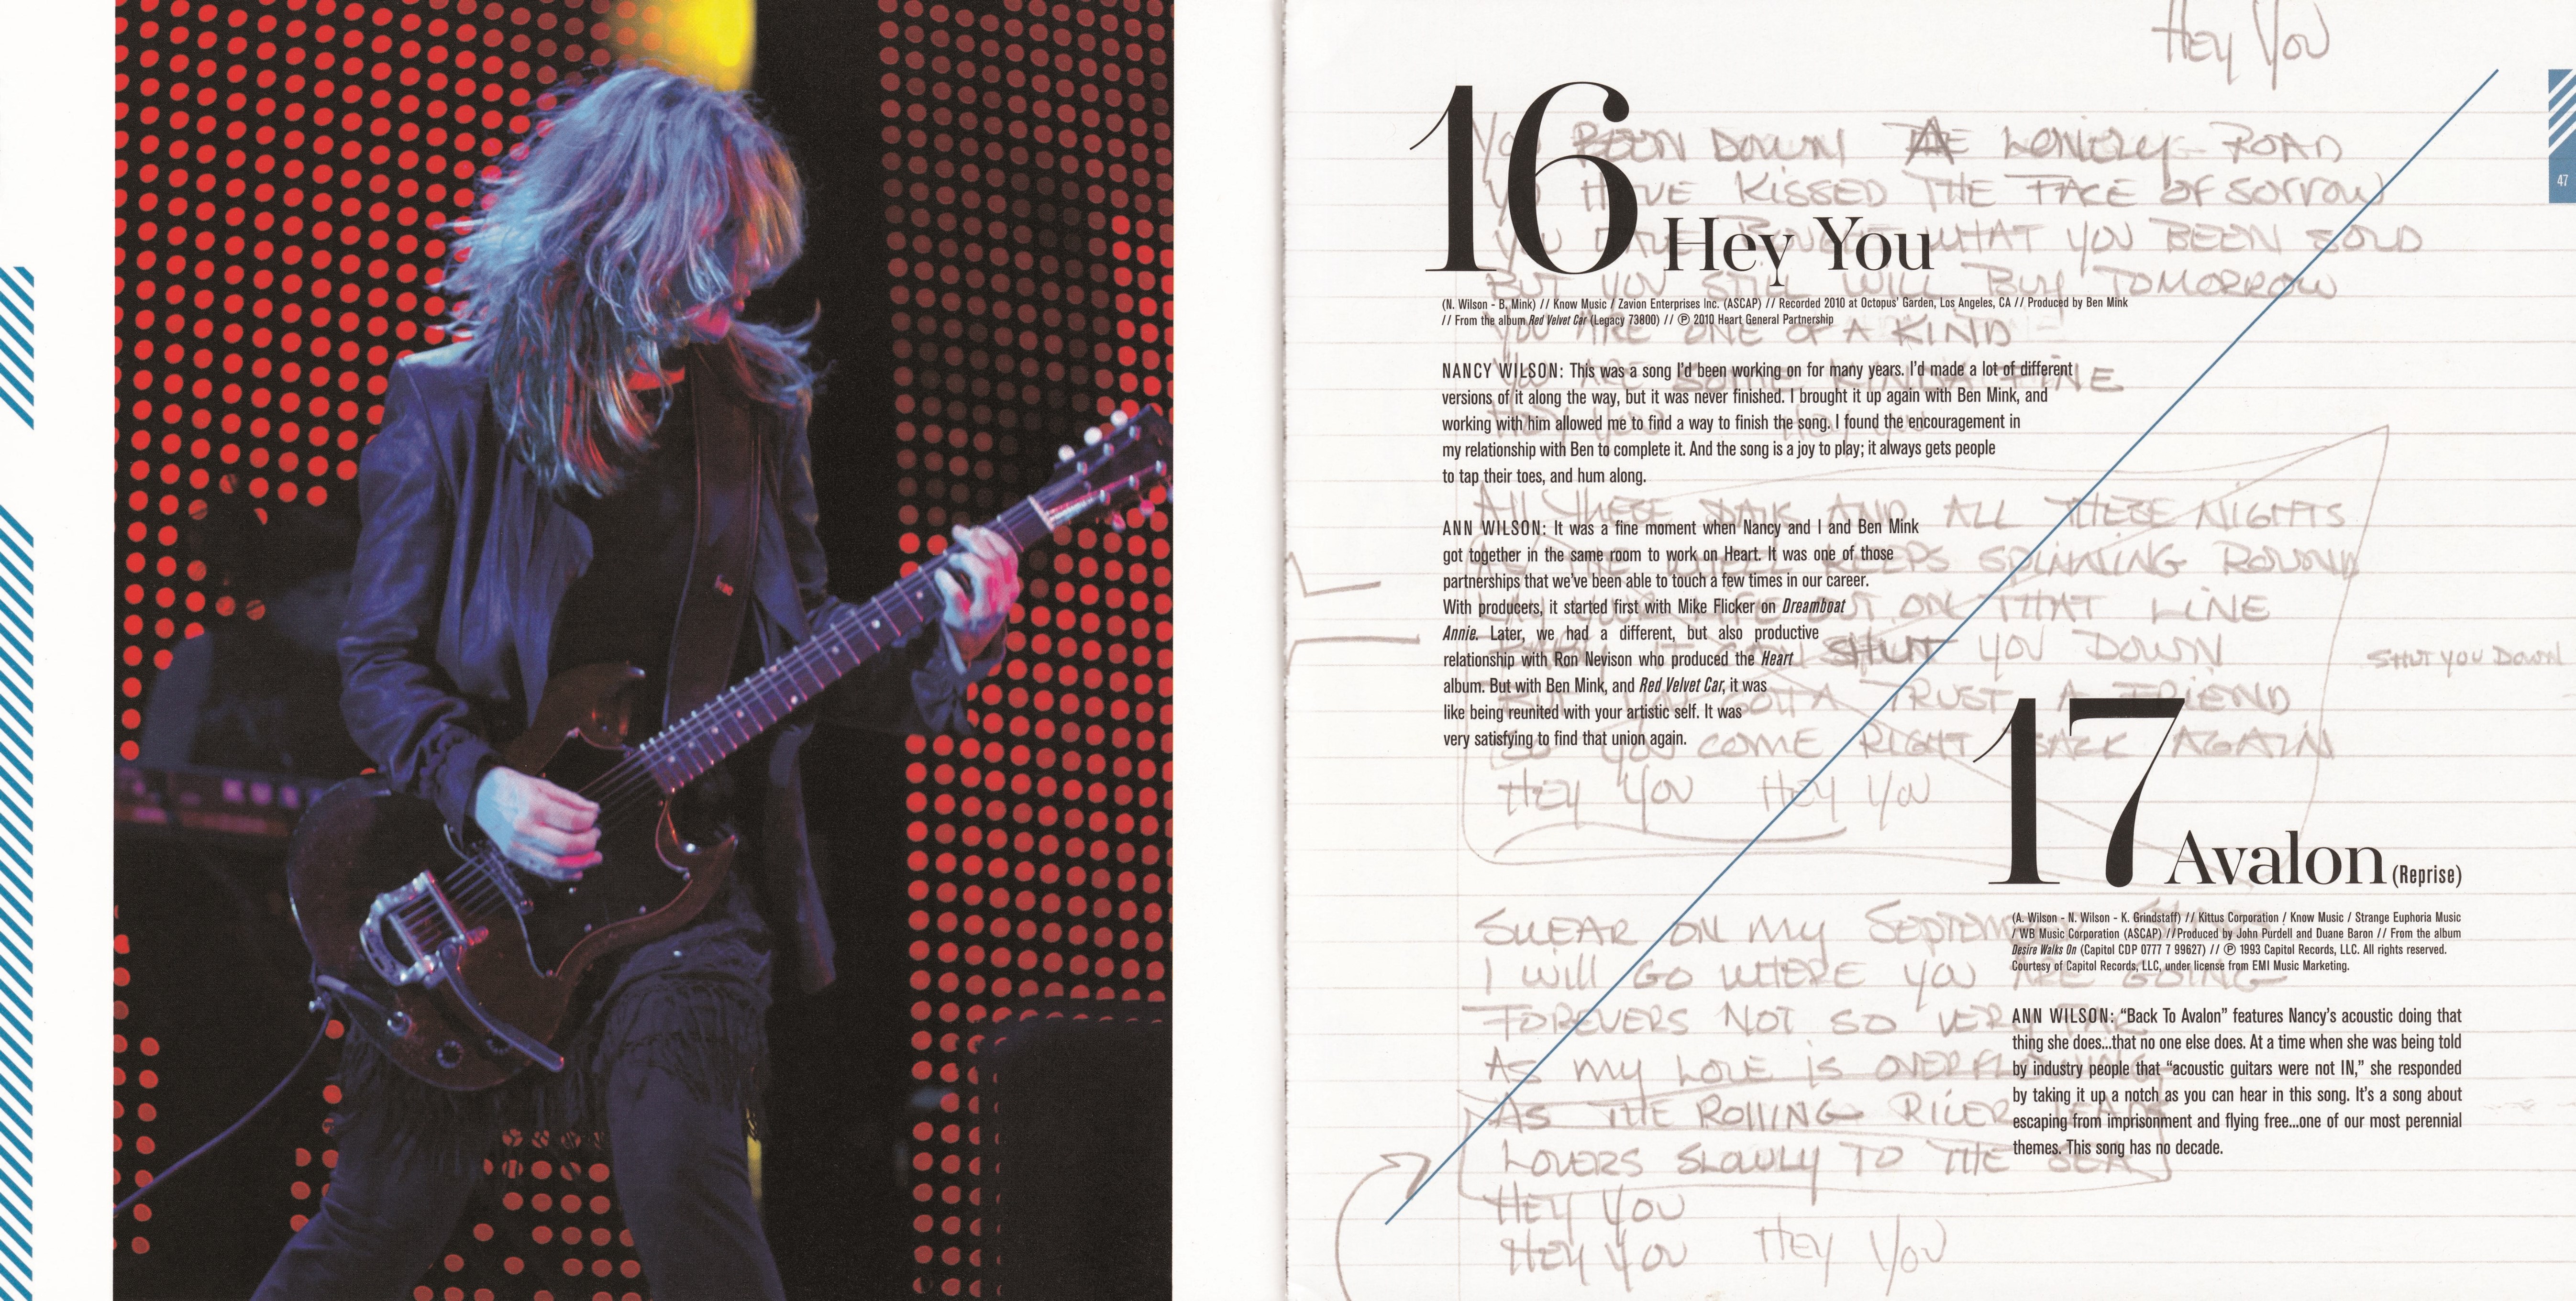 Hey You
YOU BEEN DOWN THE LONELY ROAD
YOU HAVE KISSED THE FACE OF SORROW
YOU HAVE BOUGHT WHAT YOU BEEN SOLD
BUT YOU STILL WILL BUY TOMORROW
YOU ARE ONE OF A KIND
YOU ARE SOME KINDA FINE
Hey You Hey You
ALL THESE DAYS AND ALL THESE NIGHTS
AS THE WHEEL KEEPS SPINNING ROUND
LIFE OUT ON THAT LINE
BABY IT CAN SHUT YOU DOWN
SHUT YOU DOWN
GOTTA TRUST A FRIEND
SO YOU COME RIGHT BACK AGAIN
HEY YOU HEY YOU
SWEAR ON MY SEPTEMBER
I WILL GO WHERE YOU ARE GOING
FOREVERS NOT SO VERY FAR
AS MY LOVE IS OVERFLOWING
AS THE ROLLING RIVER LEADS
LOVERS SLOWLY TO THE SEA
HEY YOU
HEY YOU HEY YOU
47
16 Hey You
(N. Wilson - B. Mink) // Know Music / Zavion Enterprises Inc. (ASCAP) // Recorded 2010 at Octopus' Garden, Los Angeles, CA // Produced by Ben Mink
// From the album Red Velvet Car (Legacy 73800) // ℗ 2010 Heart General Partnership
NANCY WILSON: This was a song I'd been working on for many years. I'd made a lot of different
versions of it along the way, but it was never finished. I brought it up again with Ben Mink, and
working with him allowed me to find a way to finish the song. I found the encouragement in
my relationship with Ben to complete it. And the song is a joy to play; it always gets people
to tap their toes, and hum along.
ANN WILSON: It was a fine moment when Nancy and I and Ben Mink
got together in the same room to work on Heart. It was one of those
partnerships that we've been able to touch a few times in our career.
With producers, it started first with Mike Flicker on Dreamboat
Annie. Later, we had a different, but also productive
relationship with Ron Nevison who produced the Heart
album. But with Ben Mink, and Red Velvet Car, it was
like being reunited with your artistic self. It was
very satisfying to find that union again.
17 Avalon (Reprise)
(A. Wilson - N. Wilson - K. Grindstaff) // Kittus Corporation / Know Music / Strange Euphoria Music
/ WB Music Corporation (ASCAP) //Produced by John Purdell and Duane Baron // From the album
Desire Walks On (Capitol CDP 0777 7 99627) // ℗ 1993 Capitol Records, LLC. All rights reserved.
Courtesy of Capitol Records, LLC, under license from EMI Music Marketing.
ANN WILSON: “Back To Avalon” features Nancy's acoustic doing that
thing she does...that no one else does. At a time when she was being told
by industry people that “acoustic guitars were not IN,” she responded
by taking it up a notch as you can hear in this song. It's a song about
escaping from imprisonment and flying free...one of our most perennial
themes. This song has no decade.